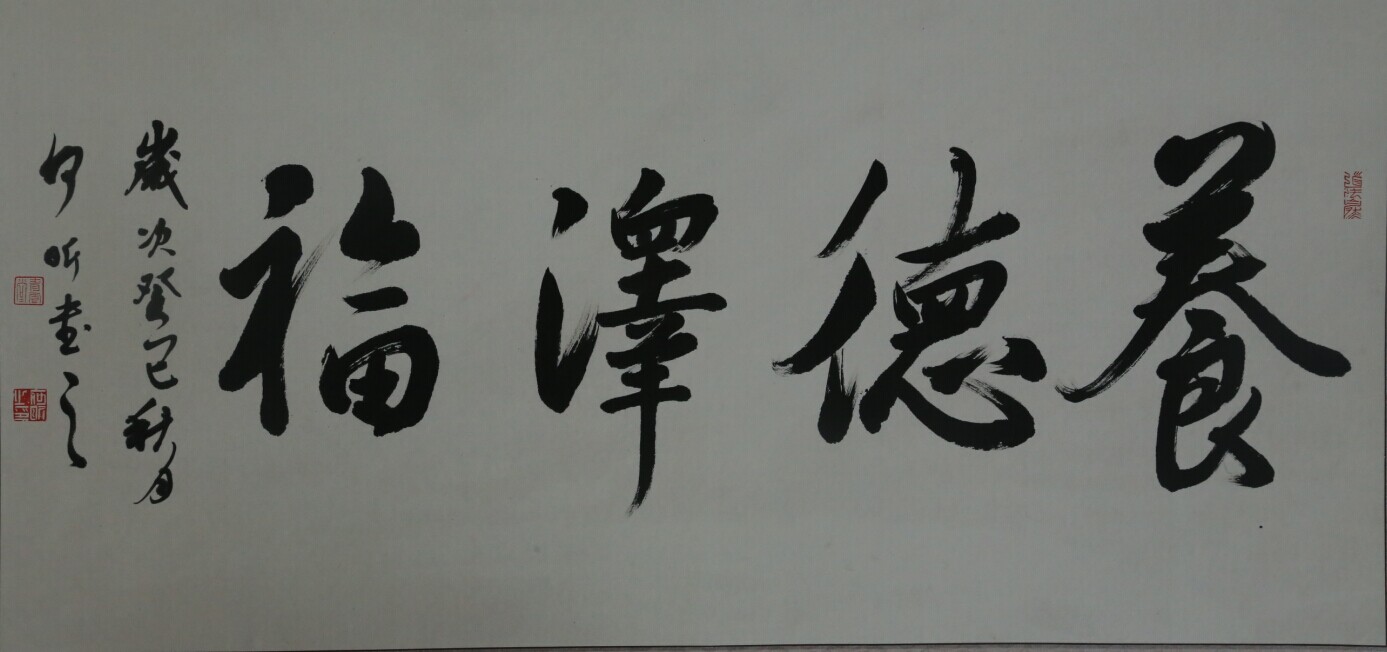 養德澤福
歲次癸巳秋月
何昕書之